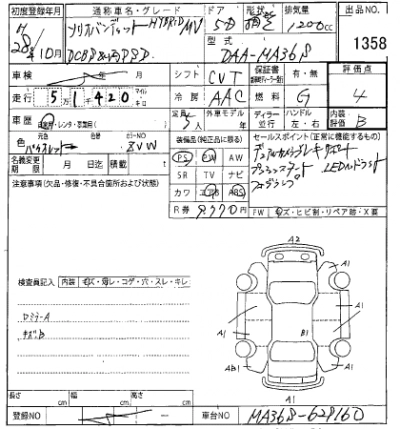 初度登録年月 通称車名・グレード ドア 形状 排気量 出品NO.
H28年10月 ソリオバンディット HYBRID MV 5D 1200cc 1358
DCBS 型式 DAA-MA36S
車検 年 月 シフト CVT 保証書 有・無 評価点
走行 5万1千420 冷房 AAC 燃料 G 4
車歴 定員 5人 外車モデル年 ディーラー 並行 ハンドル 左・右 内装評価 B
色 元色 カラーNO ZVW 装備品(純正品に限る) セールスポイント(正常に機能するもの)
名義変更期限 月 日迄 積載 t PS PW AW デュアルカメラブレーキサポート
注意事項(欠品・修復・不具合箇所および状態) SR TV ナビ プッシュスタート LEDヘッドライト
カワ エアB ABS フォグランプ
R券 9,770円 FW キズ・ヒビ割・リペア跡・X要
A2
検査員記入 内装 キズ・汚レ・コゲ・穴・スレ・キレ
A1 A1
Dミラー A
キズ B
A1 B1 A1
AB1 A1
A1
長さ cm 幅 cm 高さ cm
登録NO 車台NO MA36S-629160